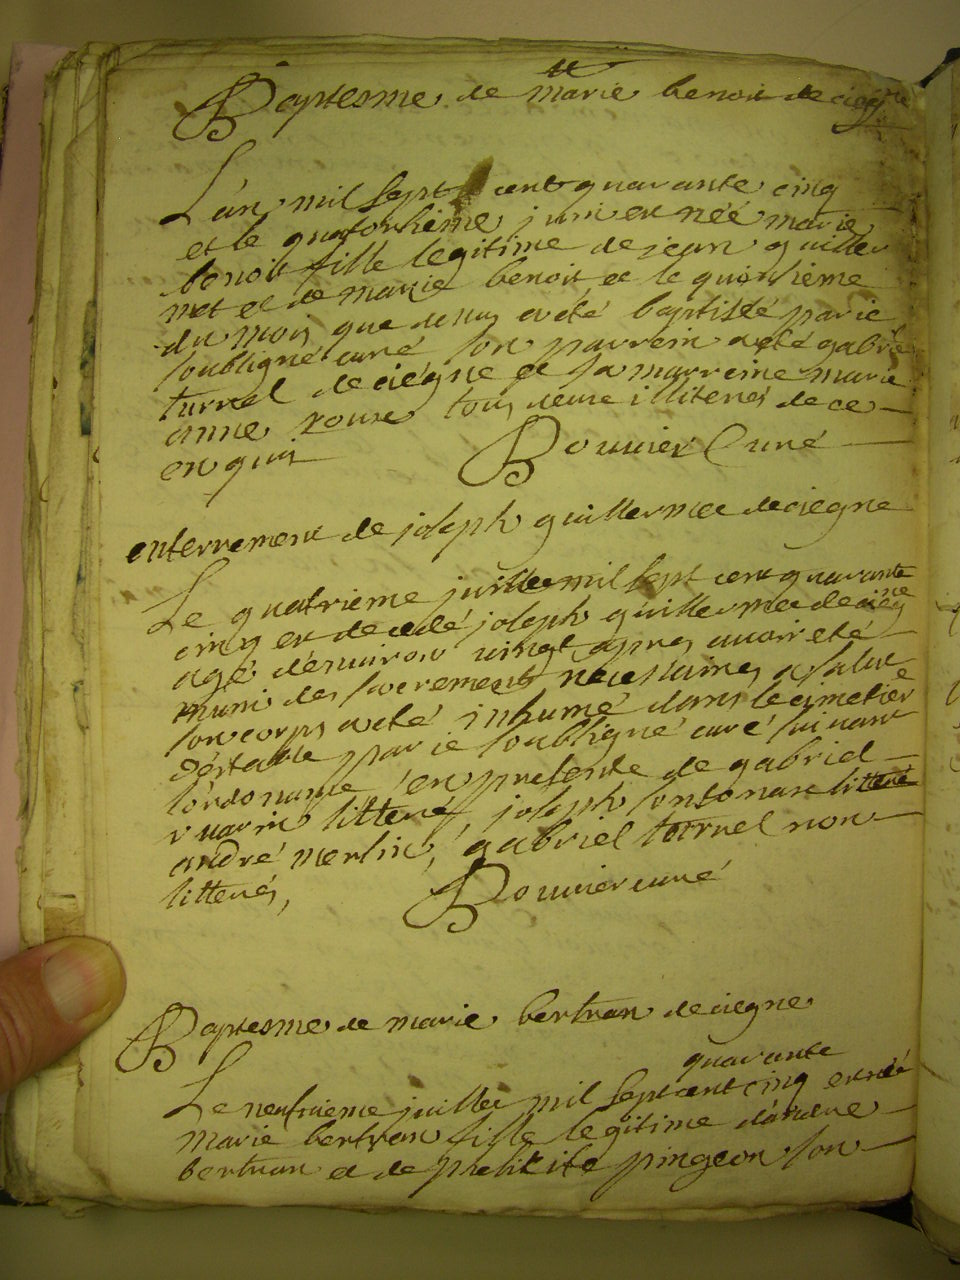 Baptesme de marie benoit de ciegne
L'an mil sept cent quarante cinq
et le quatorhième juin est née marie
benoit fille legitime de jean guiller
met et de marie benoit et le quinhième
du mois que desus a eté baptisée par ie
soubsigné curé son parrein a eté gabriel
turrel de ciegne et sa marreine marie
anne roux tous deux illiterés de ce
enquis Bouvier Curé
enterrement de joseph guillermee de ciegne
Le quatrieme juillee mil sept cent quarante
cinq est decedé joseph guillermee de ciegne
agé d'enuiron uingt apres auoir eté
muni des sacrements necessaires a salut
son corps a eté inhumé dans le cimetier
d'estable par ie soubsigné curé suivant
l'ordonance, en presence de gabriel
ruarin litteré, joseph fontonase litteré
andré merlin, gabriel torrel non
litterés, Bouvier curé
Baptesme de marie bertran de ciegne
quarante
Le neufuieme juillee mil sept cent cinq est née
marie bertran fille legitime d'andre
bertran et de pingeon son